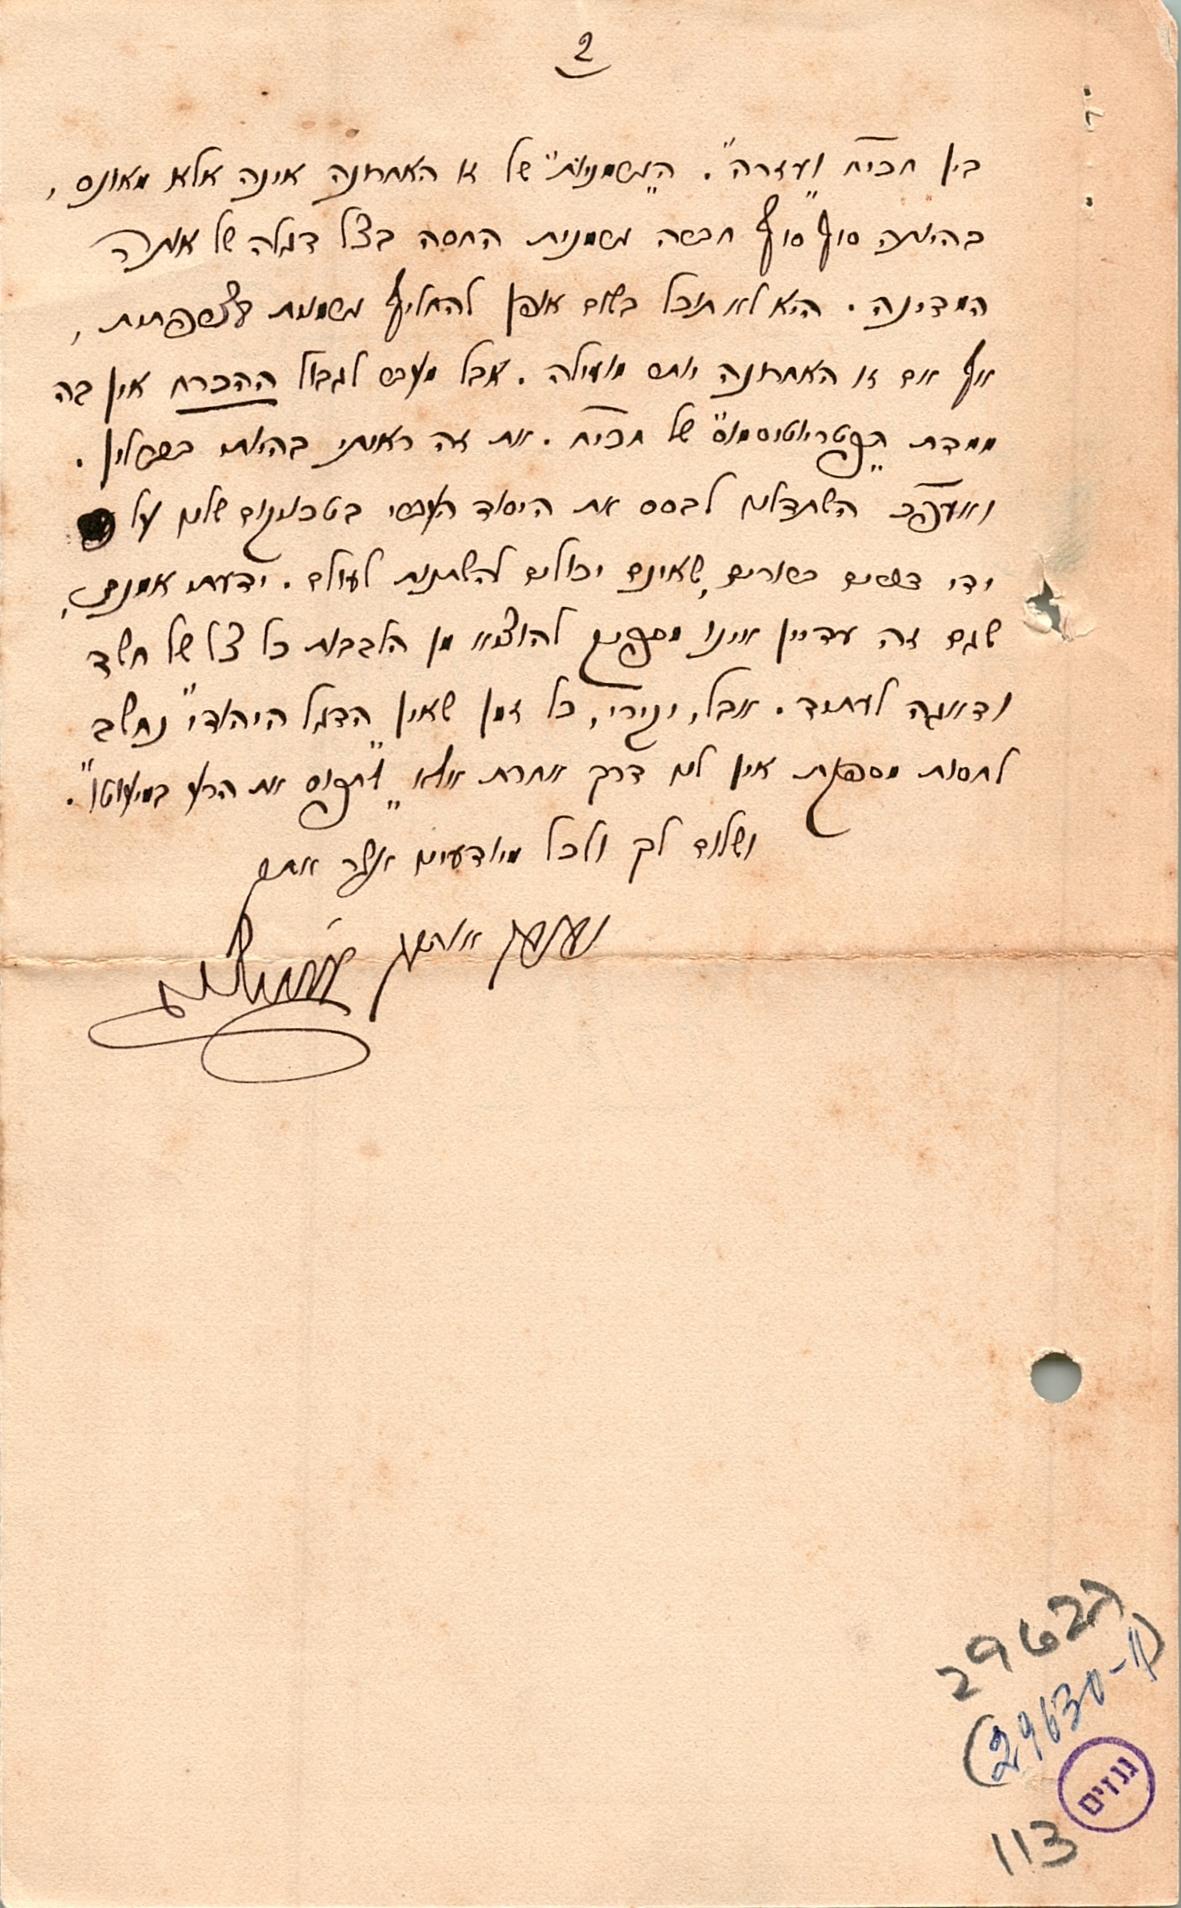 2
בין חכי״ח ו„עזרה״. ה„גשמניות״ של זו האחרונה אינה אלא מאונס,
בהיותה סוף סוף חברה גשמנית החסה בצל דגלה של אותה
המדינה. היא לא תוכל בשום אופן להחליף גשמנית בצרפתית,
אף אם זו האחרונה יותר מועילה. אבל מעבר לגבול ההכרח אין בה
ממדת ה„פטריוטיסמוס״ של חכי״ח. את זה ראיתי בהיותי בברלין.
ואעפ״כ השתדלנו לבסס את היסוד העברי בטכניקום שלנו על
ידי דברים ברורים, שאינם יכולים להשתנות לעולם. ידעתי אמנם,
שגם זה עדיין אינו מספיק להוציא מן הלבבות כל צל של חשד
ודאגה לעתיד. אבל, יקירי, כל זמן שאין „הדגל היהודי״ נחשב
לחסות מספקת אין לנו דרך אחרת אלא „לתפוס את הרע במיעוטו״.
ושלום לך ולכל מיודעינו אצלך אתם
29627
(29630-א)
גנזים
113